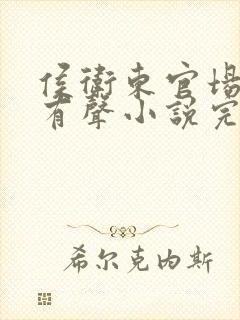 侯衛東官場
有聲小說完
希尔克内斯